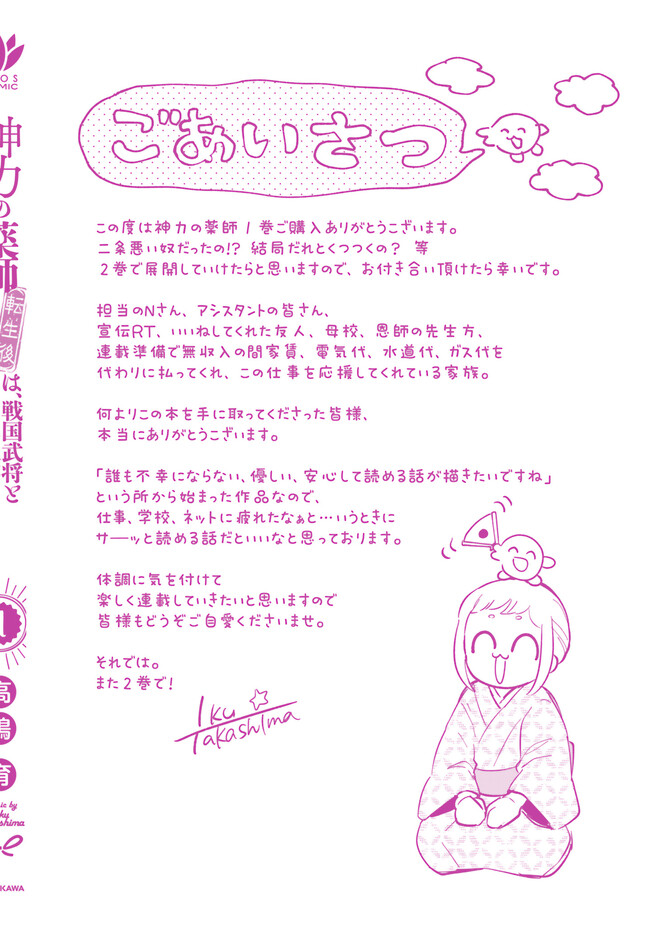 ごあいさつ
この度は神力の薬師1巻ご購入ありがとうございます。
二条悪い奴だったの!? 結局だれとくっつくの? 等
2巻で展開していけたらと思いますので、お付き合い頂けたら幸いです。
担当のNさん、アシスタントの皆さん、
宣伝RT、いいねしてくれた友人、母校、恩師の先生方、
連載準備で無収入の間家賃、電気代、水道代、ガス代を
代わりに払ってくれ、この仕事を応援してくれている家族。
何よりこの本を手に取ってくださった皆様、
本当にありがとうございます。
「誰も不幸にならない、優しい、安心して読める話が描きたいですね」
という所から始まった作品なので、
仕事、学校、ネットに疲れたなぁと…いうときに
サーッと読める話だといいなと思っております。
体調に気を付けて
楽しく連載していきたいと思いますので
皆様もどうぞご自愛くださいませ。
それでは。
また2巻で!
Iku
Takashima
神力の薬師
転生後
は、戦国武将と
1
高
嶋
育